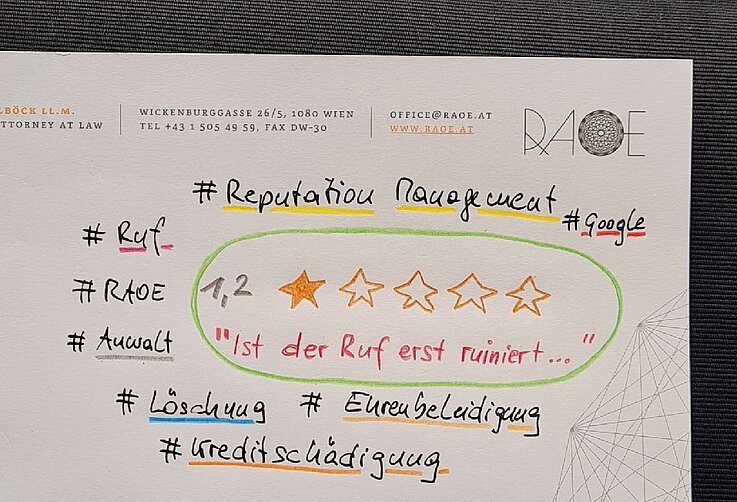 LBÖCK LL.M.
TTORNEY AT LAW
WICKENBURGGASSE 26/5, 1080 WIEN
TEL +43 1 505 49 59, FAX DW-30
OFFICE@RAOE.AT
WWW.RAOE.AT
RAOE
# Reputation Management
# Google
# Ruf
# RAOE
# Anwalt
1,2
"Ist der Ruf erst ruiniert..."
# Löschung # Ehrenbeleidigung
# Kreditschädigung